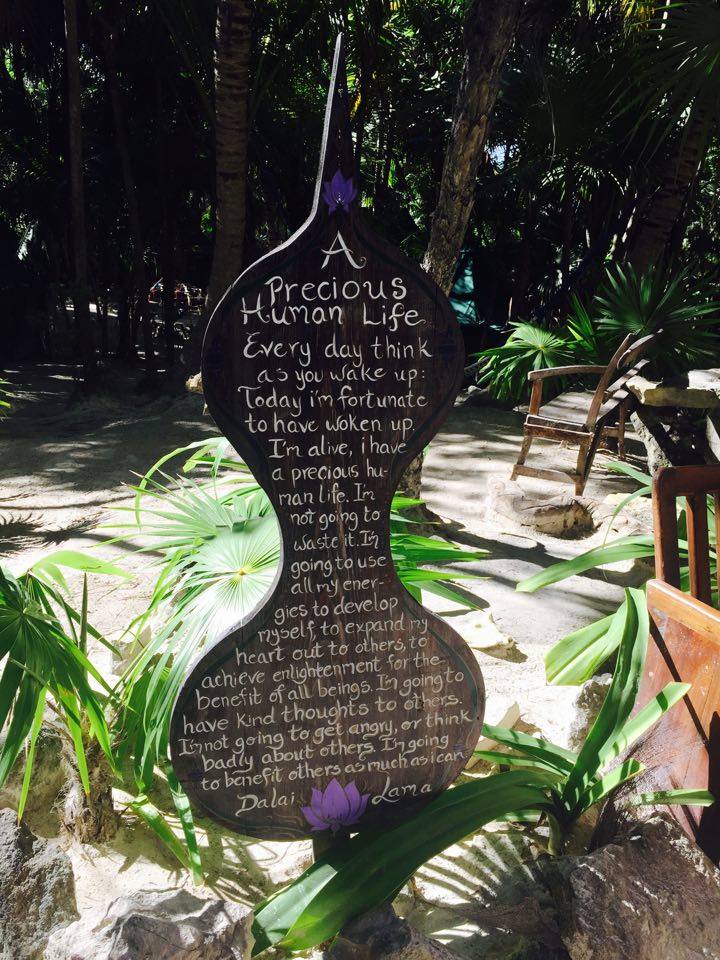 A
Precious
Human Life
Every day think
as you wake up:
Today i'm fortunate
to have woken up.
I'm alive, i have
a precious hu-
man life. I'm
not going to
waste it. I'm
going to use
all my ener-
gies to develop
myself, to expand my
heart out to others, to
achieve enlightenment for the
benefit of all beings. I'm going to
have kind thoughts to others.
I'm not going to get angry, or think
badly about others. I'm going
to benefit others as much as i can
Dalai Lama